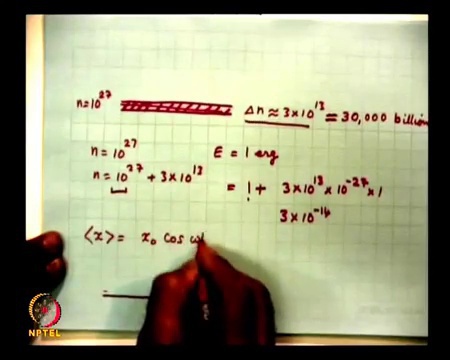 n=10^27 Δn ≈ 3×10^13 = 30,000 billion
n = 10^27 E = 1 erg
n = 10^27 + 3×10^13 = 1 + 3×10^13 × 10^-27 × 1
3×10^-14
⟨x⟩ = x₀ cos ω
NPTEL